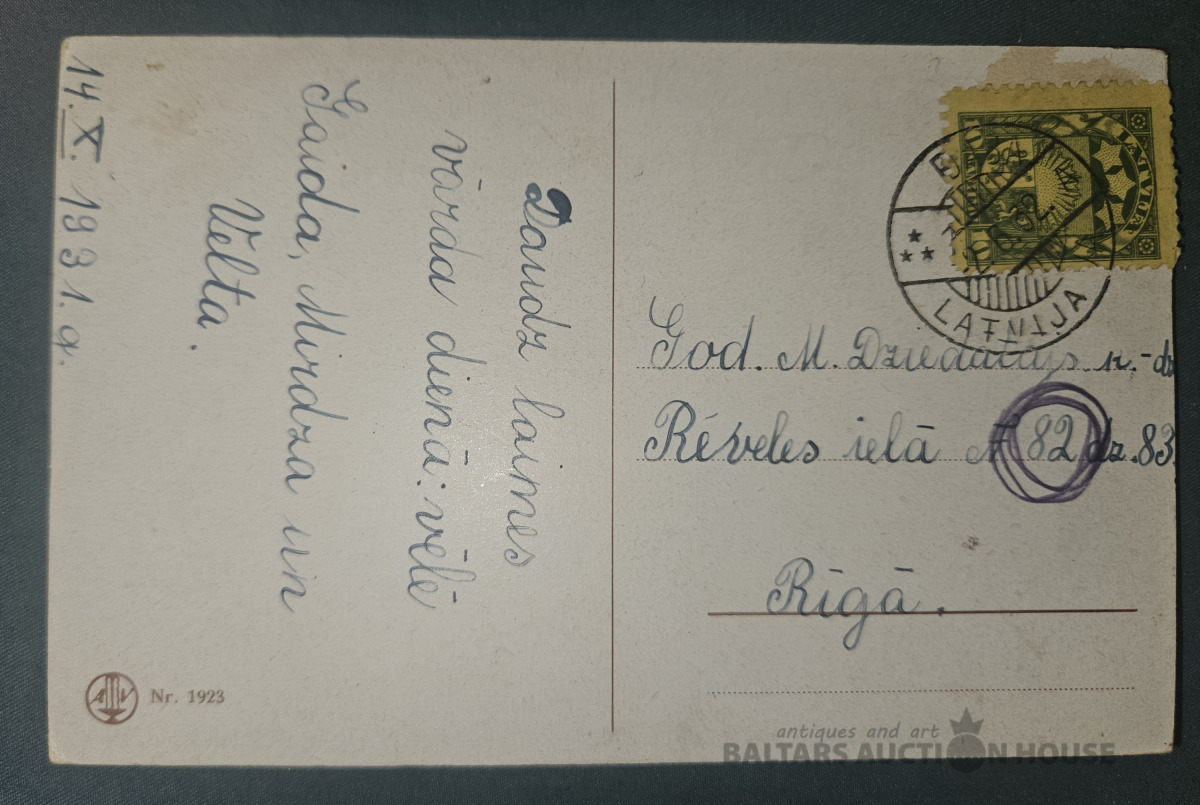 Daudz laimes
vārda dienā: vēlē
Gaida, Mirdza un
Velta.
14. X. 1931. g.
Nr. 1923
LATVIJA
LATVIJA
10
10
God. M.
Rēveles ielā № 82 dz. 83
Rīgā.
antiques and art
BALTARS AUCTION HOUSE